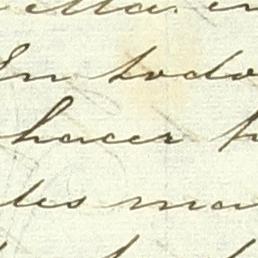 ella. en
En todo
hacer t
les ma